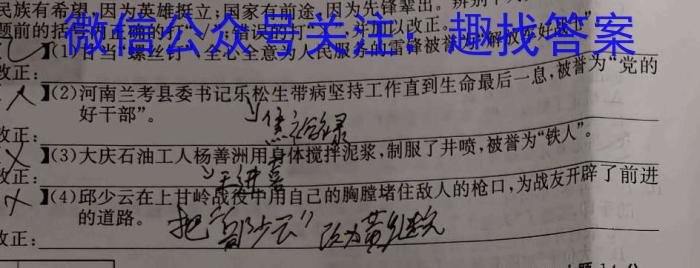 民族有希望,因为英雄挺立;国家有前途,因为先锋辈出。
微信公众号关注:趣找答案
】(1)甘当“螺丝钉”、全心全意为人民服务的雷锋被誉为“解放军好战士”。
改正:
】(2)河南兰考县委书记乐松生带病坚持工作直到生命最后一息,被誉为“党的
好干部”。
焦裕禄
改正:
】(3)大庆石油工人杨善洲用身体搅拌泥浆,制服了井喷,被誉为“铁人”。
王进喜
改正:
】(4)邱少云在上甘岭战役中用自己的胸膛堵住敌人的枪口,为战友开辟了前进
的道路。
把“邱少云”改为黄继光
改正: